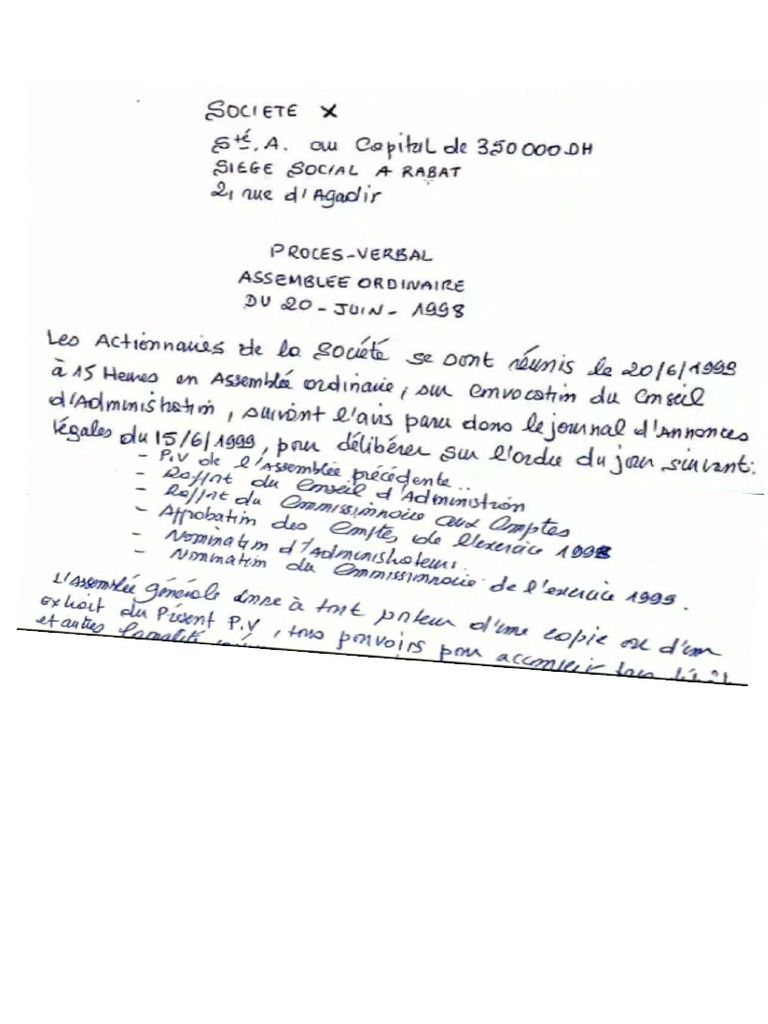 SOCIETE X
Sté. A. au Capital de 350 000 DH
SIEGE SOCIAL A RABAT
2, rue d'Agadir
PROCES-VERBAL
ASSEMBLEE ORDINAIRE
DU 20 - JUIN - 1998
Les Actionnaires de la Société se sont réunis le 20/6/1999
à 15 Heures en Assemblée ordinaire, sur convocation du Conseil
d'Administration, suivant l'avis paru dans le journal d'Annonces
légales du 15/6/1999, pour délibérer sur l'ordre du jour suivant:
- P.V de l'Assemblée précédente..
- Rapport du Conseil d'Administration
- Rapport du Commissionnaire aux Comptes
- Approbation des Comptes de l'exercice 1998
- Nomination d'Administrateur.
- Nomination du Commissionnaire de l'exercice 1999.
L'Assemblée générale donne à tout porteur d'une copie ou d'un
extrait du Présent P.V, tous pouvoirs pour accomplir
et autres